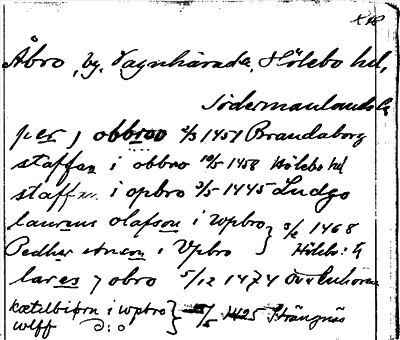 Åbro, by, Vagnhärads, Hölebo hd,
Södermanlands l.
per j obbroo 2/3 1457 Brandaborg
staffan i obbro 10/5 1458 Hölebo hd
staffan i opbro 3/5 1445 Ludgo
laurens olafson i wpbro
Pedher i Vpbro } 5/2 1468 Hölebo: h
lares j obro 5/12 1474
kætelbiørn i wpbro
wlff D:o } /5 1425 Strängnäs